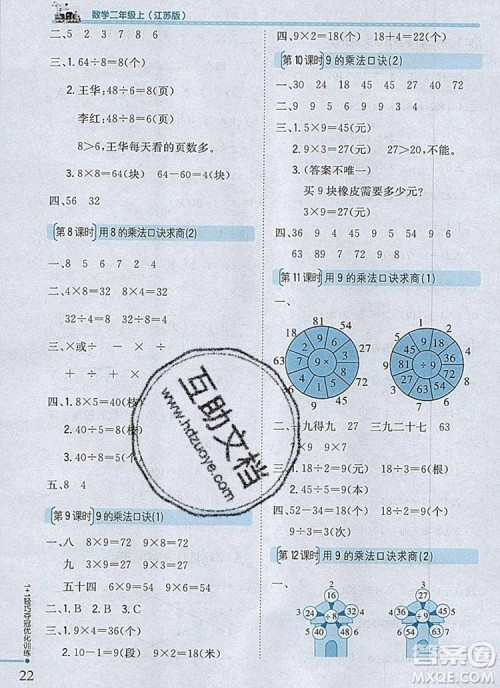 数学二年级上（江苏版）
二、5 6 7 8 9
三、1. 64÷8=8(个)
2. 王华:48÷6=8(页)
李红:48÷8=6(页)
8>6 王华每天看的页数多。
3. 8×8=64(块) 64÷8=8(块)
四、56 32
第 8 课时 用 8 的乘法口诀求商(2)
一、8 5 6 4 7 2
二、4×8=32 8×4=32
32÷4=8 32÷8=4
三、×或÷ - × ÷
+ ÷ + ×
四、1. 8×5=40(枝)
2. 40÷5=8(枝)
3. 40÷8=5(个)
五、8 4
第 9 课时 9 的乘法口诀(1)
一、八 8×9=72 9×8=72
九 3×9=27 9×3=27
五十四 6×9=54 9×6=54
二、1. B 2. A 3. C 4. B
三、1. 9×4=36(个)
2. 9×6=54(个)
3. 9×2=18(个)
四、9×2=18(个) 18+4=22(个)
第 10 课时 9 的乘法口诀(2)
一、30 24 18 45 27 40 72
二、9 6 9 9 9 4 9 8
三、1. 5×9=45(元)
2. 3×9=27(元) 27>20,不能。
3. (答案不唯一)
买 9 块橡皮需要多少元?
5×9=45(元)
第 11 课时 用 9 的乘法口诀求商(1)
一、
9×
÷9
二、一九得九 27 三九二十七 63
9×7 7×9
三、1. 9÷9=1(元) 2. 9×9=81(元)
四、52-34=18(下)
18÷9=2(下)
五、9÷3=3(次)
第 12 课时 用 9 的乘法口诀求商(2)
一、
1+1轻巧夺冠优化训练
22
互助文档
www.hdzuoye.com
答案圈
MXQE.COM